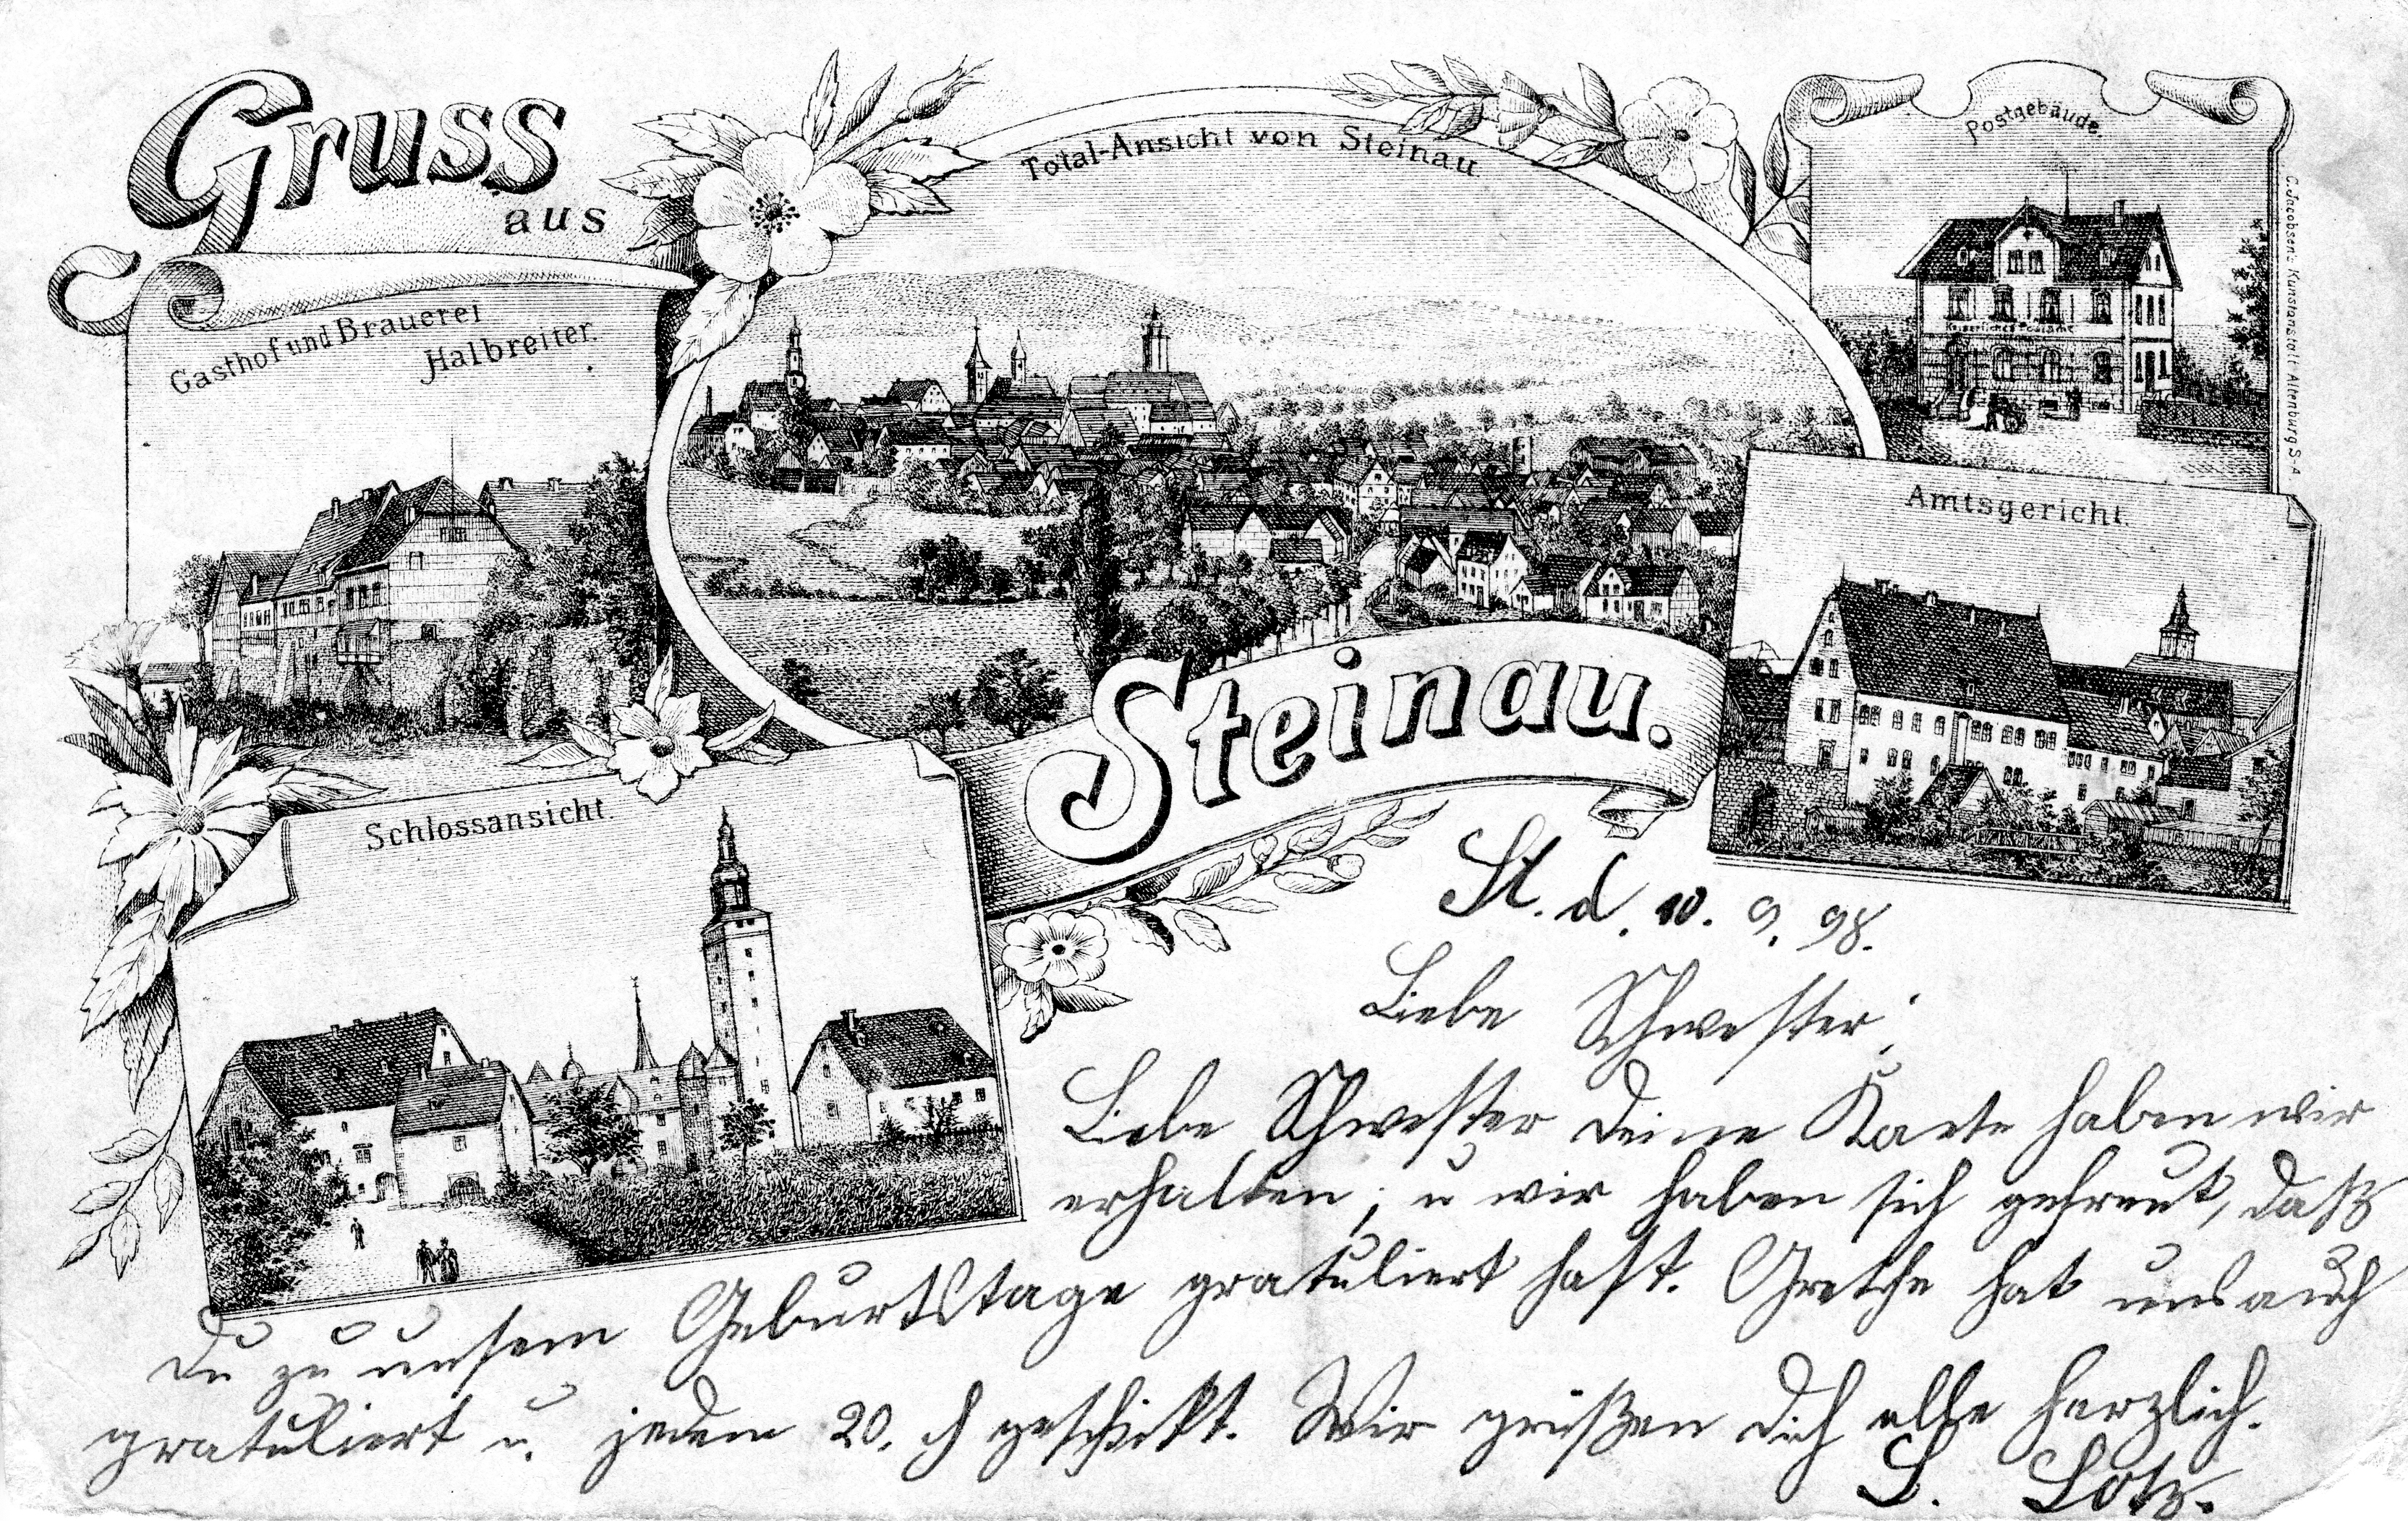 Gruss
aus
Total-Ansicht von Steinau
Postgebäude.
Gasthof und Brauerei
Halbreiter.
Kaiserliches Postamt
C. Jacobsen's Kunstanstalt Altenburg S-A
Amtsgericht.
Steinau.
Schlossansicht.
St. d. 10. 9. 98.
Liebe Schwester;
Liebe Schwester Deine Karte haben wir
erhalten, u wir haben sich gefreut, daß
Du zu unsem Geburtstage gratuliert hast. Grethe hat uns auch
gratuliert u. jedem 20. ₰ geschickt. Wir grüßen Dich alle herzlich.
L. Lotz.